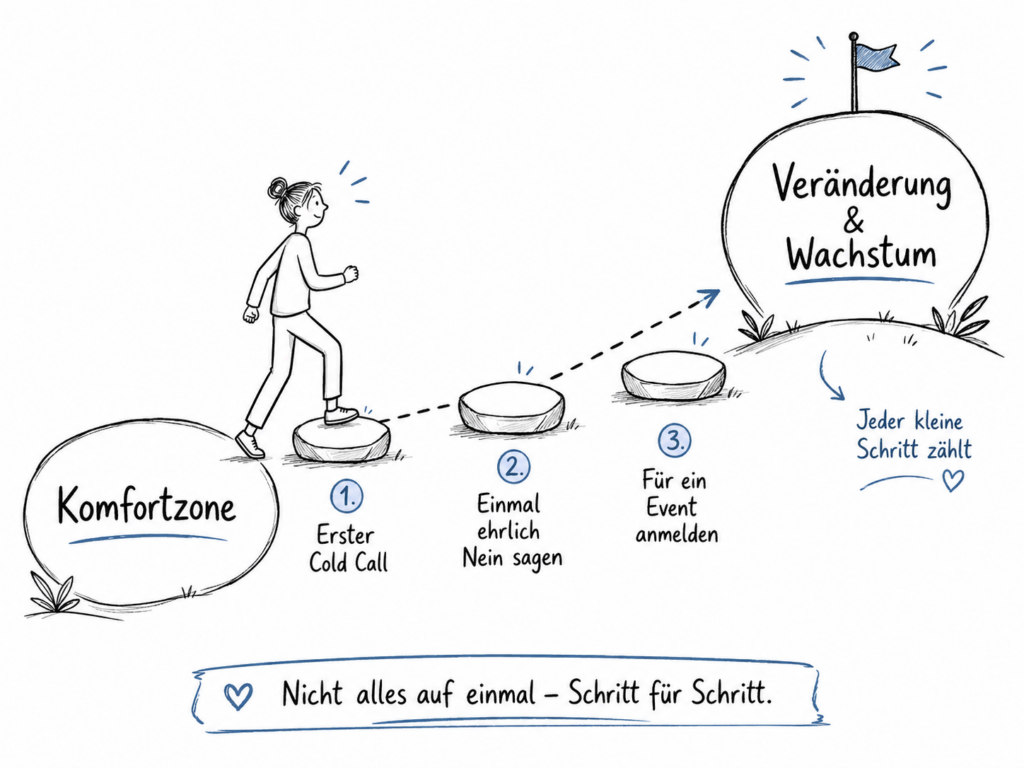 Veränderung
&
Wachstum
Komfortzone
1.
Erster
Cold Call
2.
Einmal
ehrlich
Nein sagen
3.
Für ein
Event
anmelden
Jeder kleine
Schritt zählt
Nicht alles auf einmal – Schritt für Schritt.